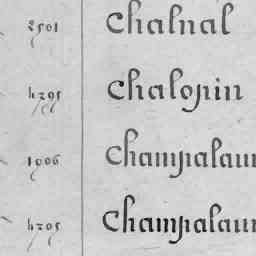 2501 Chalnal
4295 Chalopin
1906 Champalaun
4205 Champalaun